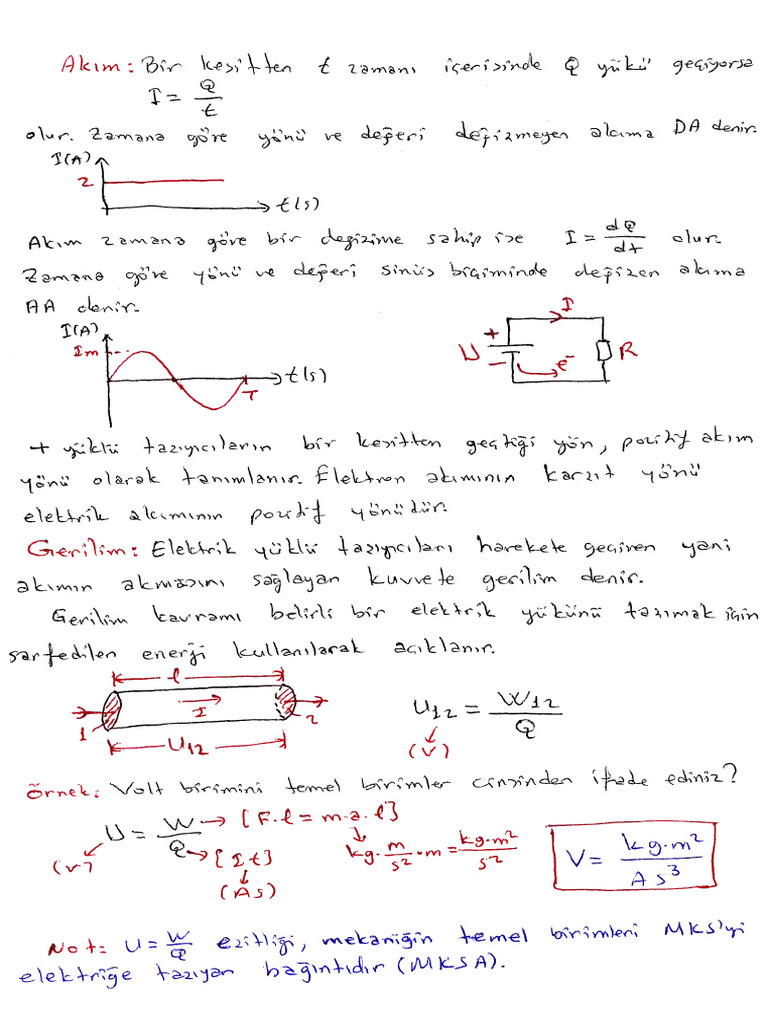 Akım: Bir kesitten t zamanı içerisinde Q yükü geçiyorsa
I = Q/t
olur. Zamana göre yönü ve değeri değişmeyen akıma DA denir.
I(A)
2
t(s)
Akım zamana göre bir değişime sahip ise I = dQ/dt olur.
Zamana göre yönü ve değeri sinüs biçiminde değişen akıma
AA denir.
I(A)
Im
t(s)
T
I
+
U
-
e⁻
R
+ yüklü taşıyıcıların bir kesitten geçtiği yön, pozitif akım
yönü olarak tanımlanır. Elektron akımının karşıt yönü
elektrik akımının pozitif yönüdür.
Gerilim: Elektrik yüklü taşıyıcıları harekete geçiren yani
akımın akmasını sağlayan kuvvete gerilim denir.
Gerilim kavramı belirli bir elektrik yükünü taşımak için
sarfedilen enerji kullanılarak açıklanır.
l
I
1
2
U12
U12 = W12/Q
(V)
Örnek: Volt birimini temel birimler cinsinden ifade ediniz?
U = W/Q
→ [F.l = m.a.l]
kg·m/s²·m = kg·m²/s²
(V)
→ [It]
(As)
V = kg·m²/As³
Not: U = W/Q eşitliği, mekaniğin temel birimleri MKS'yi
elektriğe taşıyan bağıntıdır (MKSA).